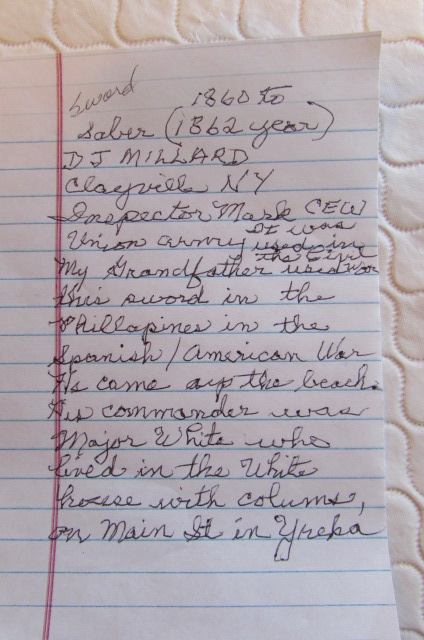 Sword
1860 to
Saber (1862 year)
DJ MILLARD
Clayville NY
Inspector Mark CEW
It was
Union army used in
the Civil
My Grandfather used War
this sword in the
Phillapines in the
Spanish/American War
As came up the beach.
His commander was
Major White who
lived in the White
house with colums,
on Main St in Yreka